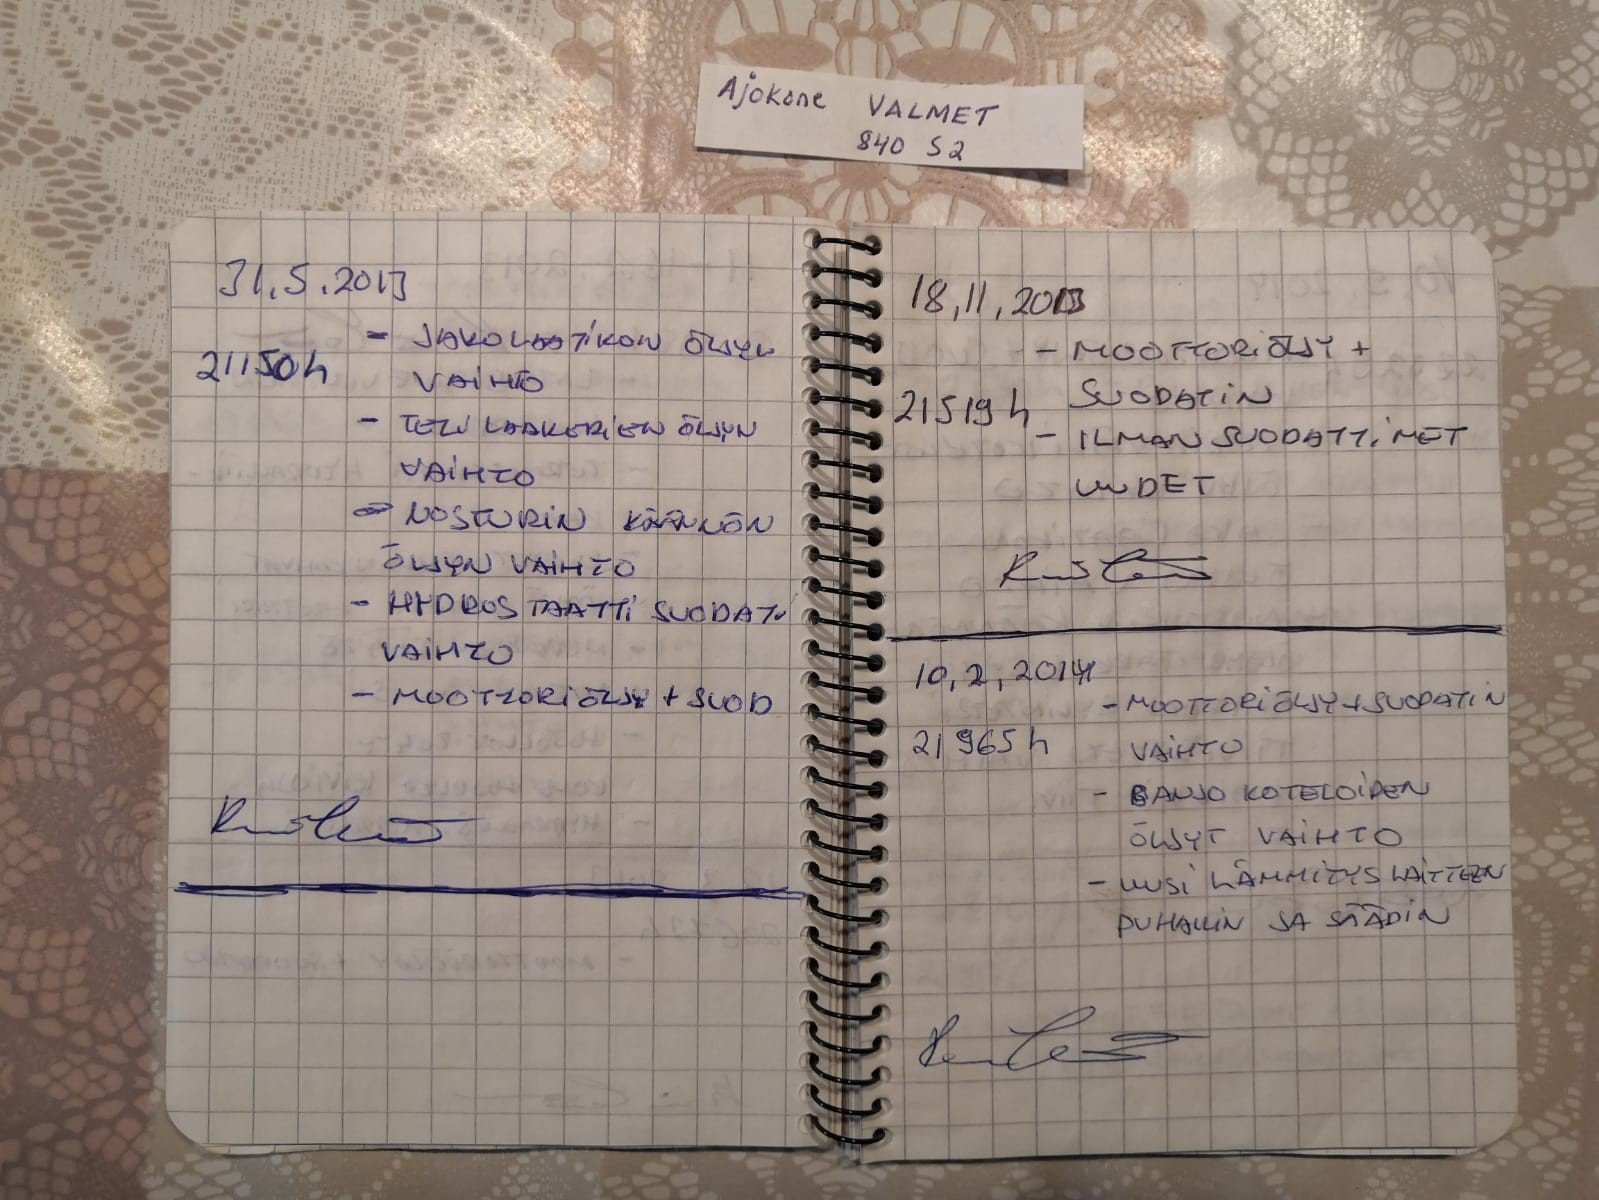 Ajokone VALMET
840 S2
31.5.2013
- JAKOLAATIKON ÖLJYN
21150h VAIHTO
- TELILAAKERIEN ÖLJYN
VAIHTO
- NOSTURIN KÄÄNNÖN
ÖLJYN VAIHTO
- HYDROSTAATTI SUODATI
VAIHTO
- MOOTTORIÖLJY + SUOD
18.11.2013
- MOOTTORIÖLJY +
21519h SUODATIN
- ILMANSUODATTIMET
UUDET
10.2.2014
- MOOTTORIÖLJY + SUODATIN
21965h VAIHTO
- BANJO KOTELOIDEN
ÖLJYT VAIHTO
- UUSI LÄMMITYSLAITTEEN
PUHALLIN JA SÄÄDIN